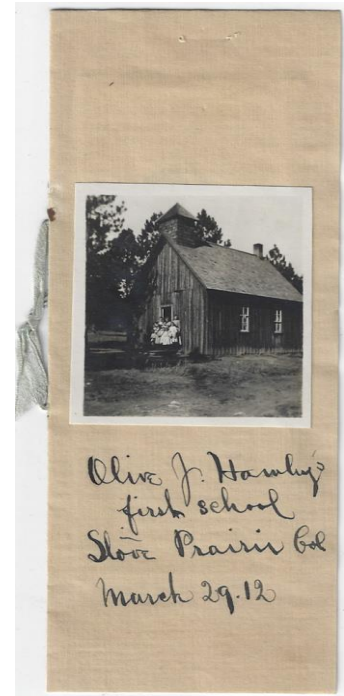 Olive J. Hawley's
first school
Slove Prairie Col
March 29.12